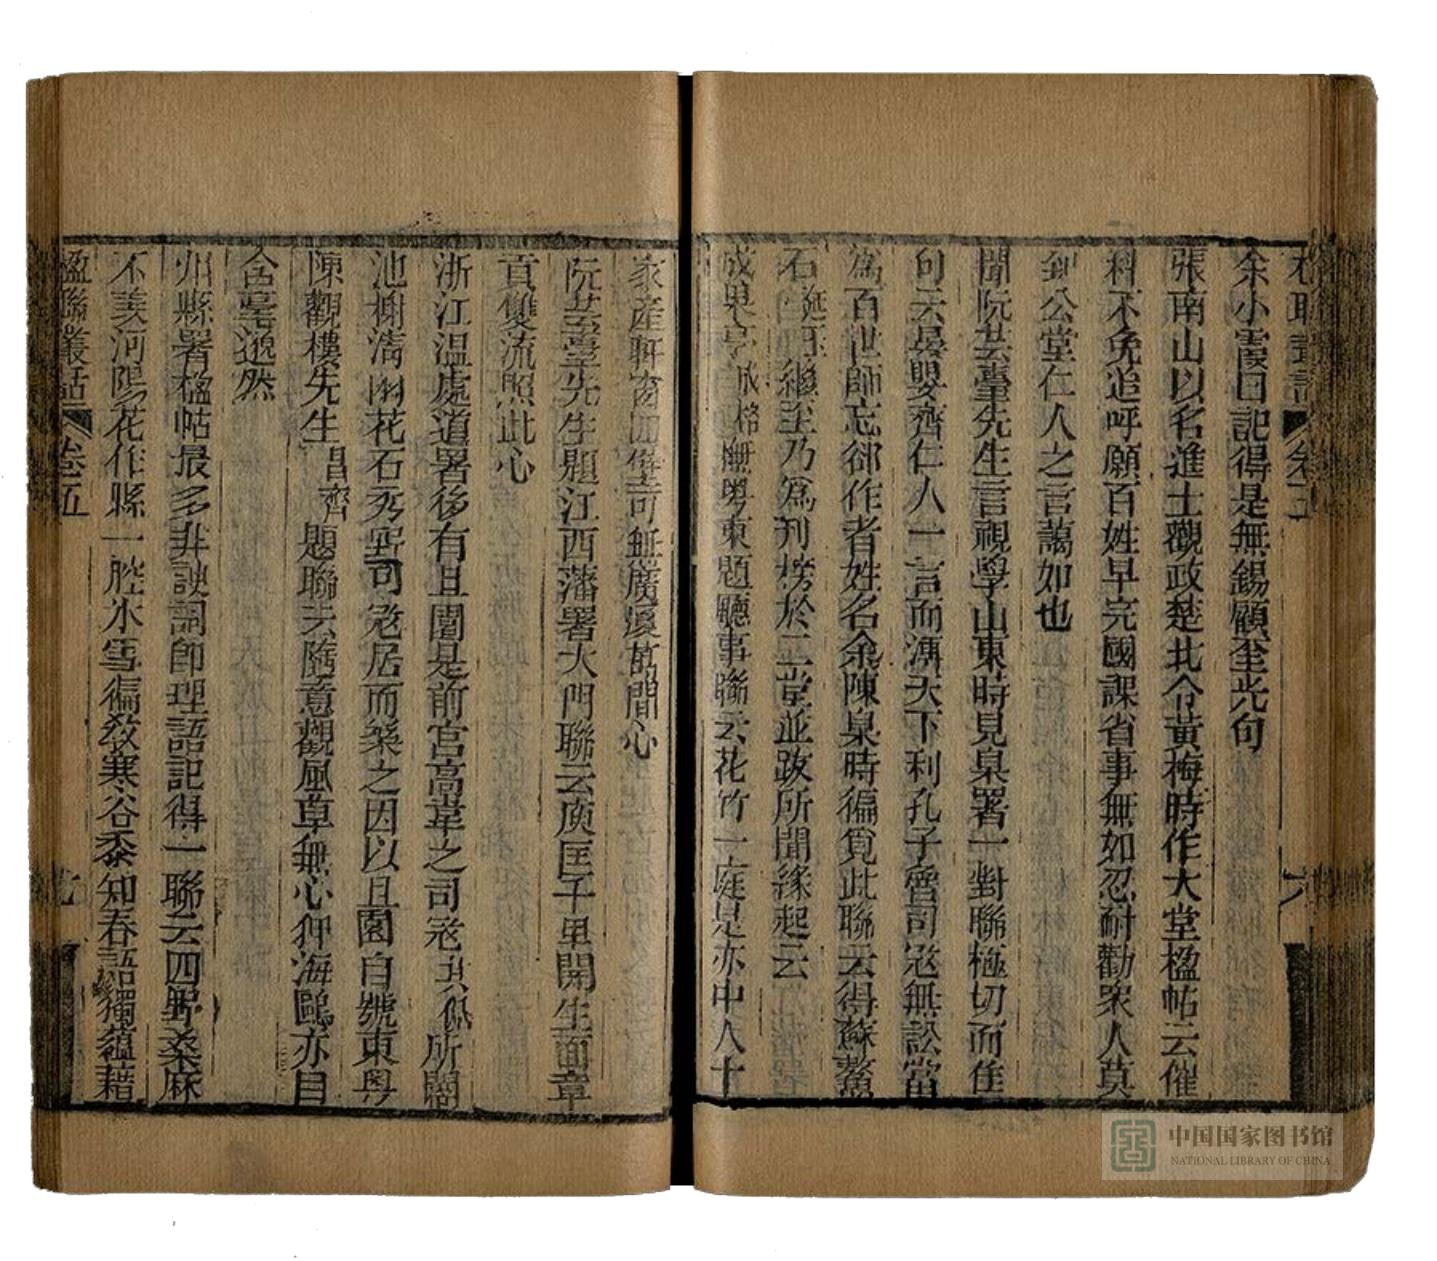 余小霞日記得是無錫顧奎光句
張南山以名進士觀政楚北令黃梅時作大堂楹帖云催
科不免追呼願百姓早完國課省事無如忍耐勸衆人莫
到公堂仁人之言藹如也
聞阮芸臺先生言視學山東時見臬署一對聯極切而佳
句云晏嬰齊仁人一言而溥天下利孔子魯司寇無訟當
爲百世師忘郤作者姓名余陳臬時徧覓此聯云得蘇鰲
石廷玉繼至乃爲刊榜於二堂並跋所聞緣起云
成果亭格撫粤東題廳事聯云花竹一庭是亦中人十
家產軒窗四壁可無廣廈萬間心
阮芸臺先生題江西藩署大門聯云庾匡千里開生面章
貢雙流照此心
浙江溫處道署後有且園是前官高韋之司寇其佩所闢
池榭清幽花石秀野司寇居而樂之因以且園自號東粤
陳觀樓先生昌齊題聯云隨意觀風草無心狎海鷗亦自
含毫邈然
州縣署楹帖最多非諛詞卽理語記得一聯云四野桑麻
不羨河陽花作縣一腔冰雪徧敎寒谷黍知春語獨蘊藉
楹聯叢話
卷五
九
中国国家图书馆
NATIONAL LIBRARY OF CHINA